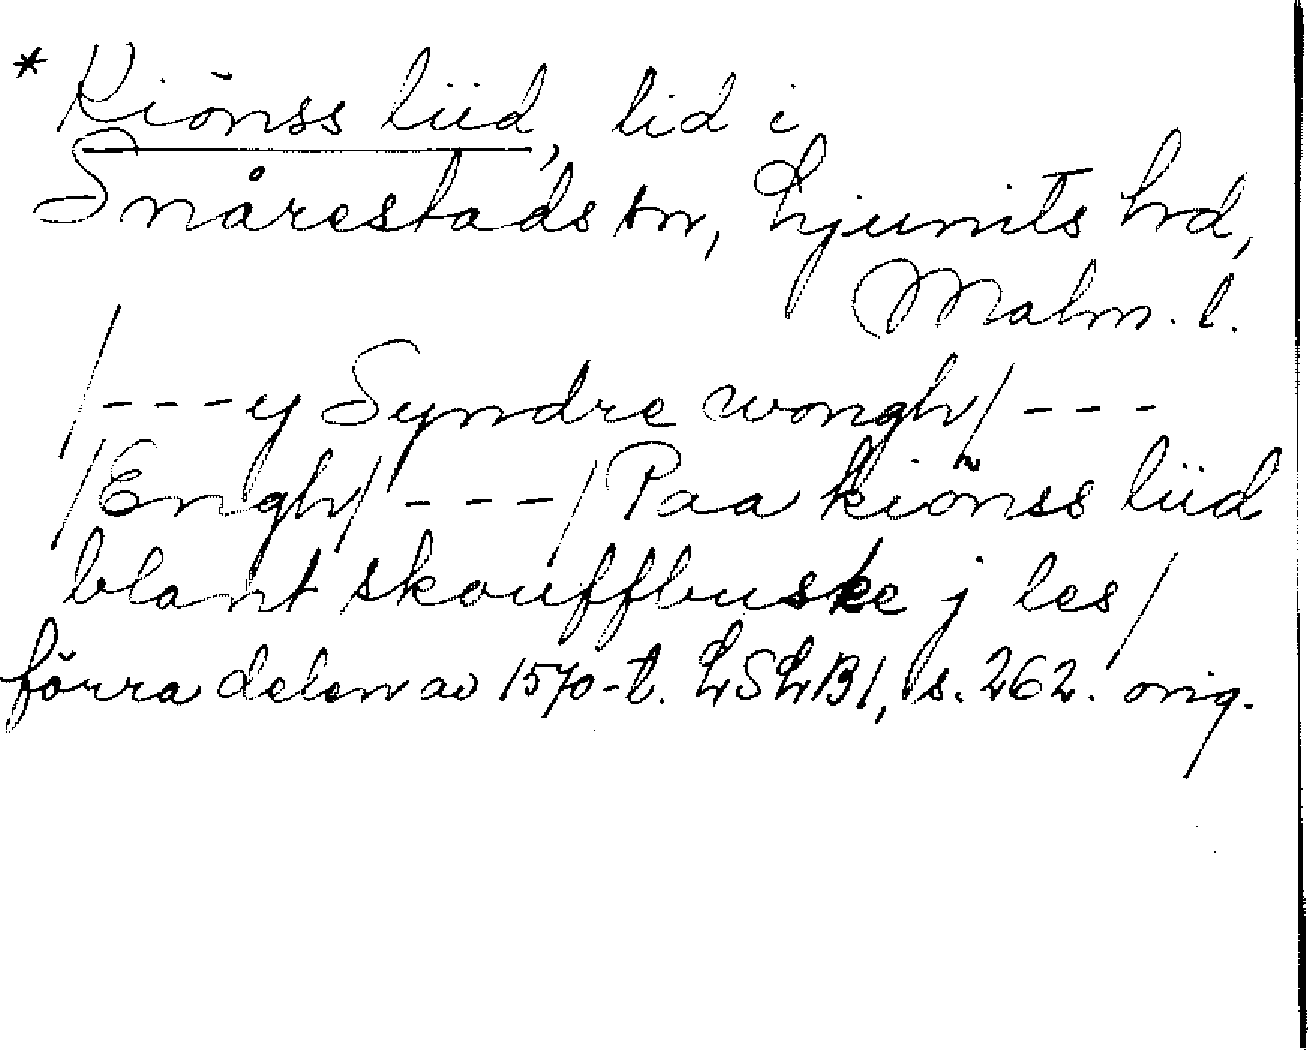 * Kiönss liid, lid i
Snårestads sn, Ljunits hrd,
Malm. l.
/---y Syndre wongh/---
/Engh/---/Paa kiönss liid
blant skouffbuske j les/
förra delen av 1570-t. LSLB1, s. 262. orig.